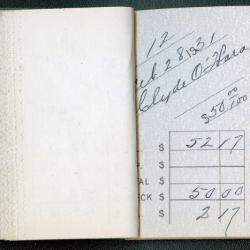 12
eb 28 1931
Clyde O'Hara
$50 00/100
$ 52 17
L. $
AL $
ECK $ 50 00
$ 2 17